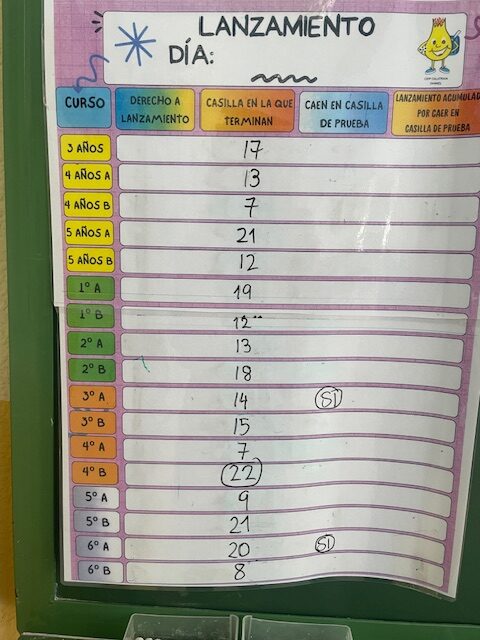 LANZAMIENTO
DÍA:
CURSO
DERECHO A
LANZAMIENTO
CASILLA EN LA QUE
TERMINAN
CAEN EN CASILLA
DE PRUEBA
LANZAMIENTO ACUMULAD
POR CAER EN
CASILLA DE PRUEBA
3 AÑOS 17
4 AÑOS A 13
4 AÑOS B 7
5 AÑOS A 21
5 AÑOS B 12
1º A 19
1º B 12
2º A 13
2º B 18
3º A 14 SI
3º B 15
4º A 7
4º B 22
5º A 9
5º B 21
6º A 20 SI
6º B 8